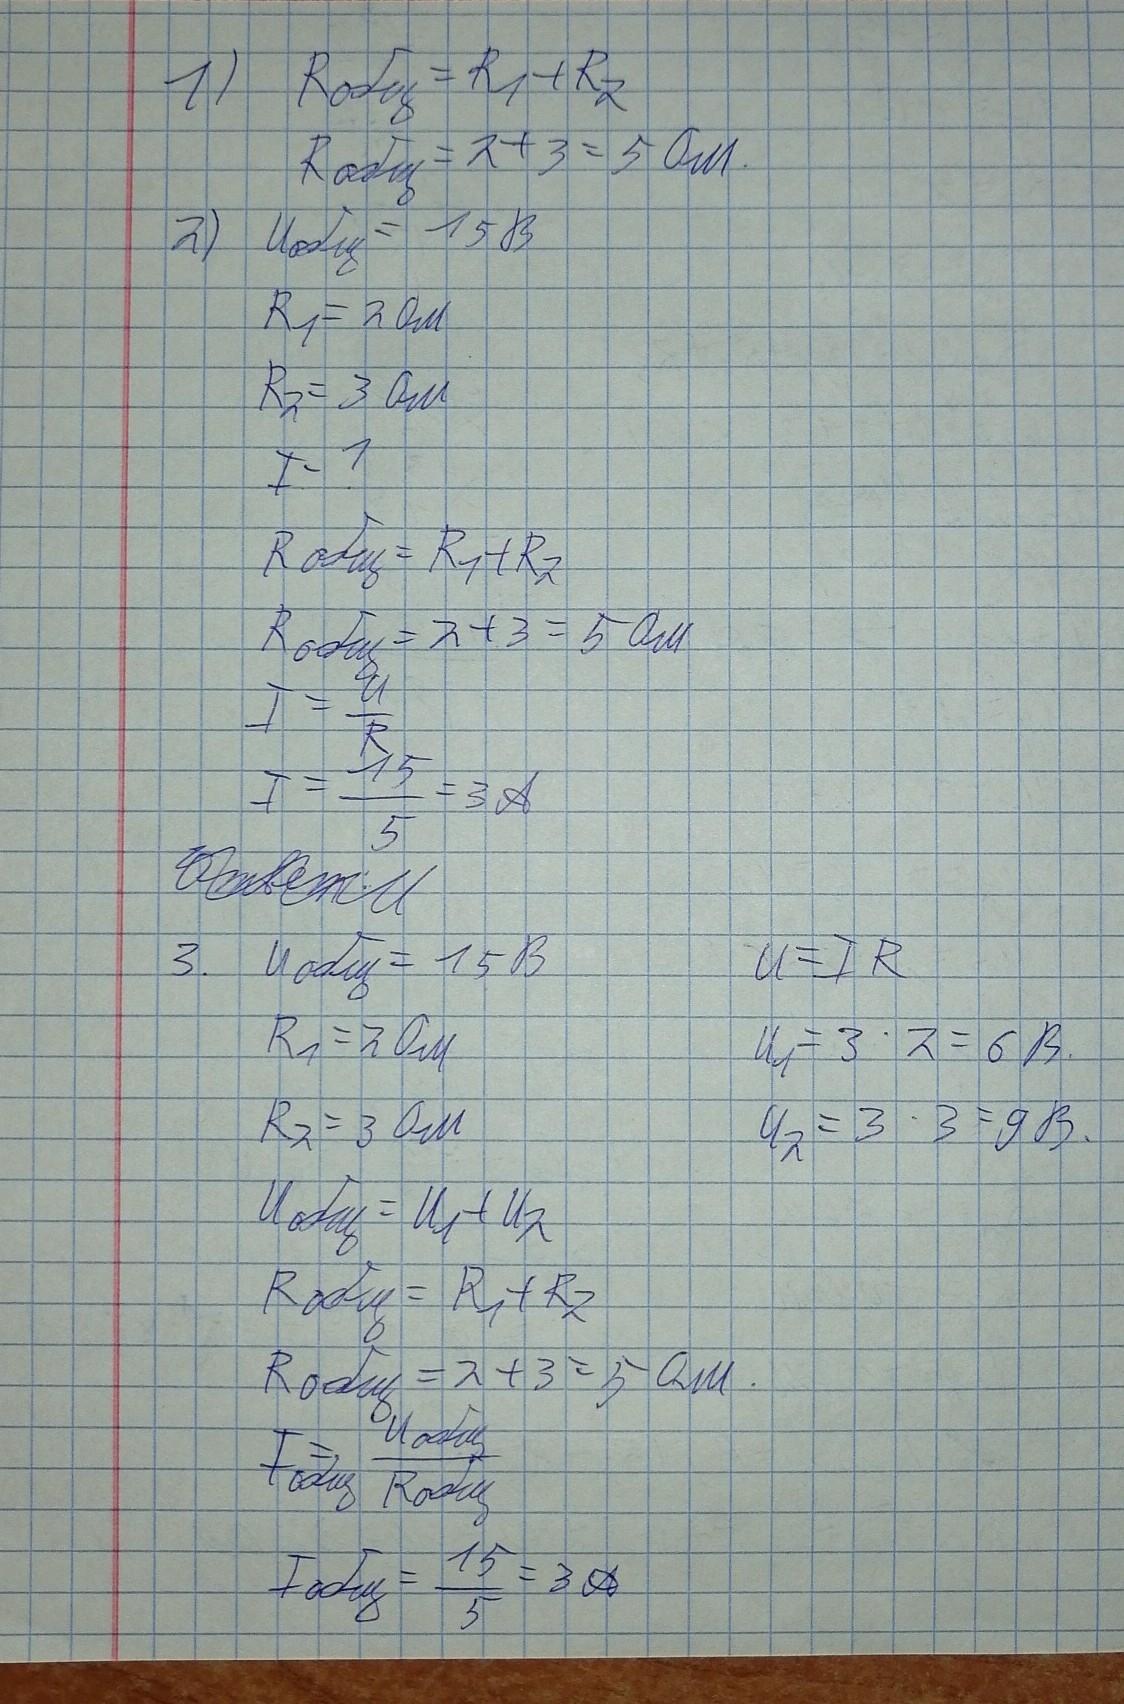 1) Rобщ = R1 + R2
Rобщ = 2 + 3 = 5 Ом.
2) Uобщ = 15 В
R1 = 2 Ом
R2 = 3 Ом
I - ?
Rобщ = R1 + R2
Rобщ = 2 + 3 = 5 Ом
I = U/R
I = 15/5 = 3 А
3. Uобщ = 15 В
R1 = 2 Ом
R2 = 3 Ом
Uобщ = U1 + U2
Rобщ = R1 + R2
Rобщ = 2 + 3 = 5 Ом.
Iобщ = Uобщ/Rобщ
Iобщ = 15/5 = 3 А
U = I R
U1 = 3 · 2 = 6 В.
U2 = 3 · 3 = 9 В.